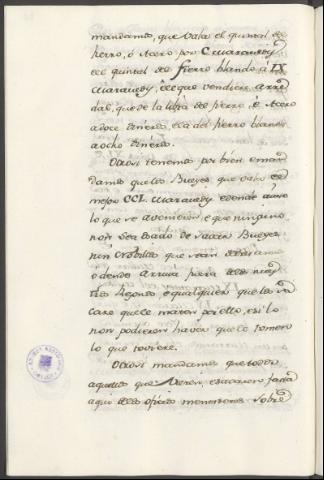 mandamos, que vala el quintal del
fierro, ó Acero por C maravedis
el quintal del fierro blando á IX
maravedis, e el que vendiere arre
dal, que de la libra del fierro, é Acero
a doce dineros, e la del fierro blando
a ocho dineros.
Otrosi tenemos por bien e man
damos que los Bueyes que vala el
mejor CCL maravedis e dende ayuso
lo que se avenieren, e que ninguno
non sea osado de sacar Bueyes
nin
que sean
e dende arriva fuera de los nros
Regnos e qualquier que los sa
care que lo maten por ello, e si lo
non podieren haver que le tomen
lo que toviere.
Otrosi mandamos que todos
aquellos que fasta
aqui de los oficios menestrales sobre